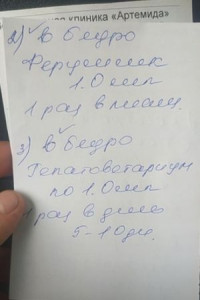 клиника «Артемида»
2) в бедро
1.0 мл
1 раз в
3) в бедро
Гепатоветариум
по 1.0 мл
1 раз в день
5-10 дн.